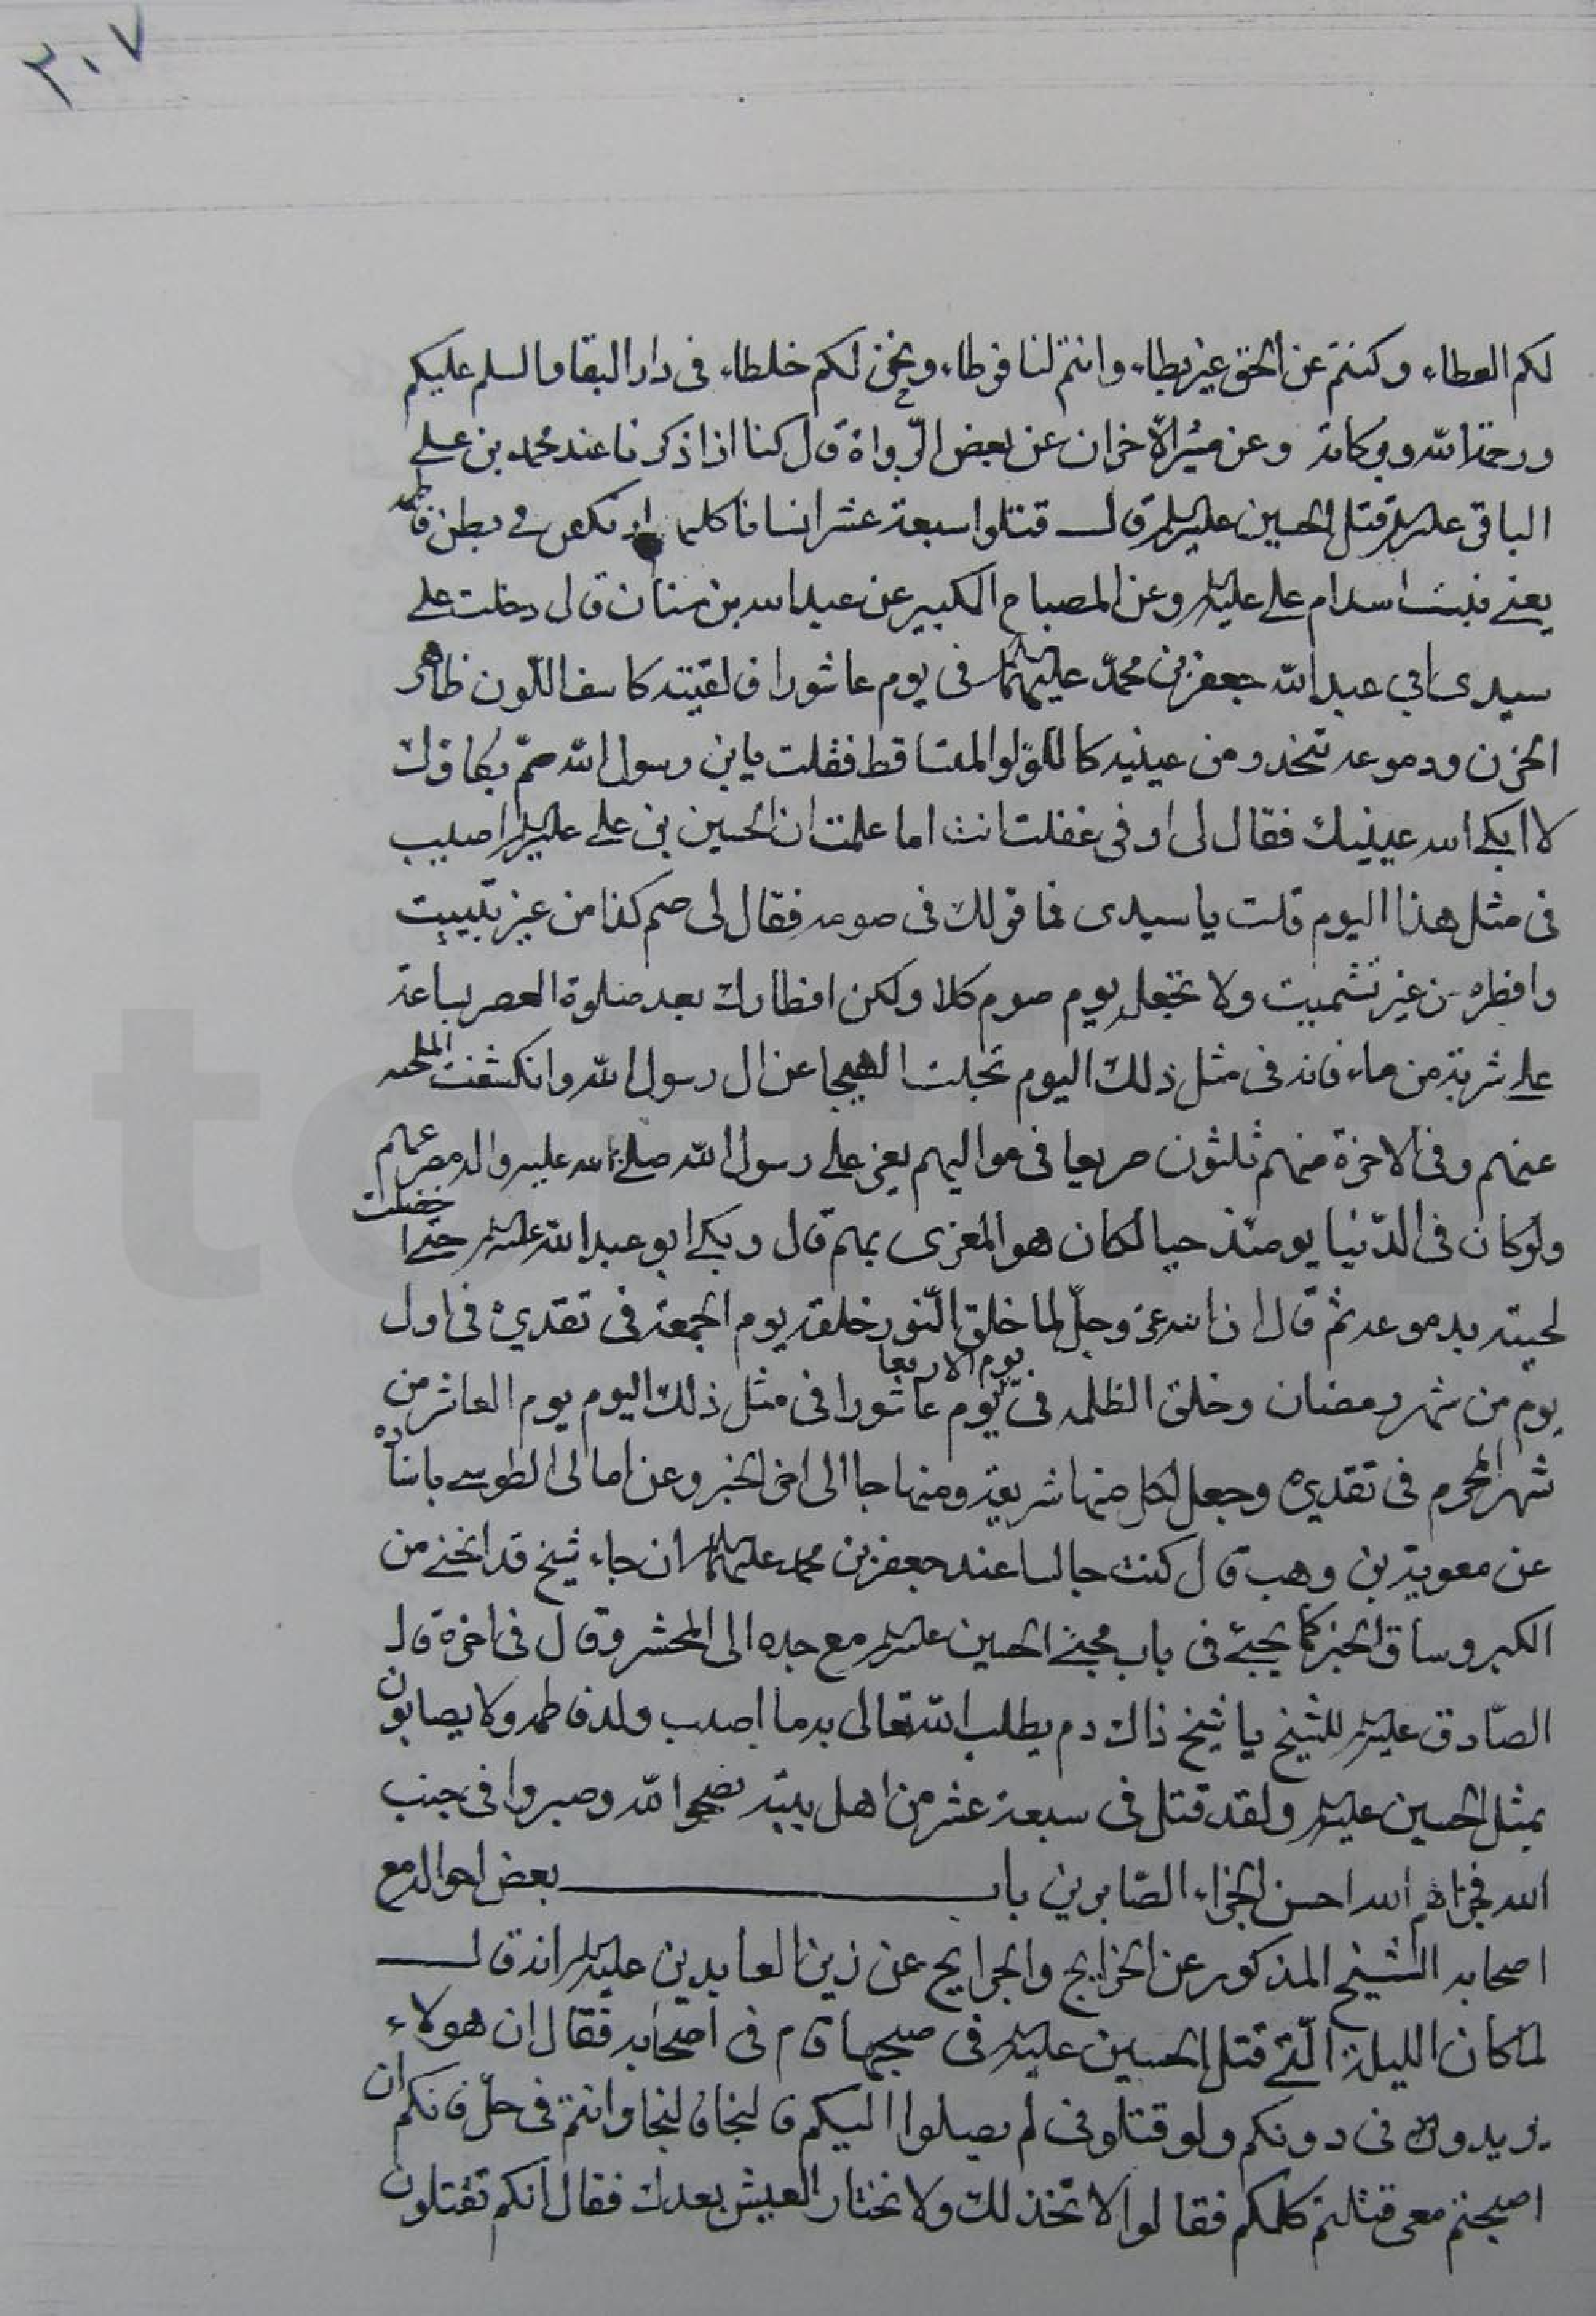 ٣٠٧
لكم العطاء وكنتم عن الحق غير بطاء وانتم لنا فرطاء ونحن لكم خلطاء فى دار البقا والسلم عليكم
ورحمة الله وبركاته وعن الاخران عن بعض الرواة قال كنا اذا ذكرنا عند محمد بن على
الباقر عليه السلم قتل الحسين عليه السلم قال قتلوا سبعة عشر انسانا كلهم ارتكض فى بطن فاطمه
يعنى بنت اسد ام على عليه السلم وعن المصباح الكبير عن عبد الله بن سنان قال دخلت على
سيدى ابي عبد الله جعفر بن محمد عليهما السلم فى يوم عاشورا فلقيته كاسف اللون ظاهر
الحزن ودموعه تنحدر من عينيه كاللؤلو المتساقط فقلت يابن رسول الله مم بكاؤك
لا ابكى الله عينيك فقال لى او فى غفلت انت اما علمت ان الحسين بن على عليه السلم اصيب
فى مثل هذا اليوم قلت يا سيدى فما قولك فى صومه فقال لى صم كذا من غير تبييت
وافطره من غير تشميت ولا تجعله يوم صوم كلا ولكن افطارك بعد صلوة العصر بساعة
على شربة من ماء فانه فى مثل ذلك اليوم تجلت الهيجا عن ال رسول الله وانكشفت الملحمه
عنهم وفى الاخرة منهم ثلثون صريعا فى مواليهم يعز على رسول الله صلى الله عليه واله مصرعهم
ولو كان فى الدنيا يومئذ حيا لكان هو المعزى بهم قال وبكى ابو عبد الله عليه السلم حتى اخضلت
لحيته بدموعه ثم قال ان الله عز وجل لما خلق النور خلقه يوم الجمعة فى تقديره فى اول
يوم من شهر رمضان وخلق الظلمه فى يوم الاربعا يوم عاشورا فى مثل ذلك اليوم يوم العاشر من
شهر المحرم فى تقديره وجعل لكل منها شريعة ومنهاجا الى اخر الخبر وعن امالى الطوسى باسناده
عن معوية بن وهب قال كنت جالسا عند جعفر بن محمد عليهما السلم ان جاء شيخ قد انحنى من
الكبر وساق الخبر كما يجئ فى باب مجئ الحسين عليه السلم مع جده الى المحشر وقال فى اخره قال
الصادق عليه السلم للشيخ يا شيخ ذاك دم يطلب الله تعالى به ما اصيب ولد فاطمه ولا يصابون
بمثل الحسين عليه السلم ولقد قتل فى سبعة عشر من اهل بيته نصحوا لله وصبروا فى جنب
الله فجزاهم الله احسن الجزاء الصابرين باب بعض احواله مع
اصحابه الشيخ المذكور عن الخرايج والجرايح عن زين العابدين عليه السلم انه قال
لما كان الليلة التى قتل الحسين عليه السلم فى صبحها قام فى اصحابه فقال ان هولاء
يريدونى دونكم ولو قتلونى لم يصلوا اليكم فالنجا فالنجا وانتم فى حل فانكم ان
اصبحتم معى قتلتم كلكم فقالوا لا نخذلك ولا نختار العيش بعدك فقال انكم تقتلون